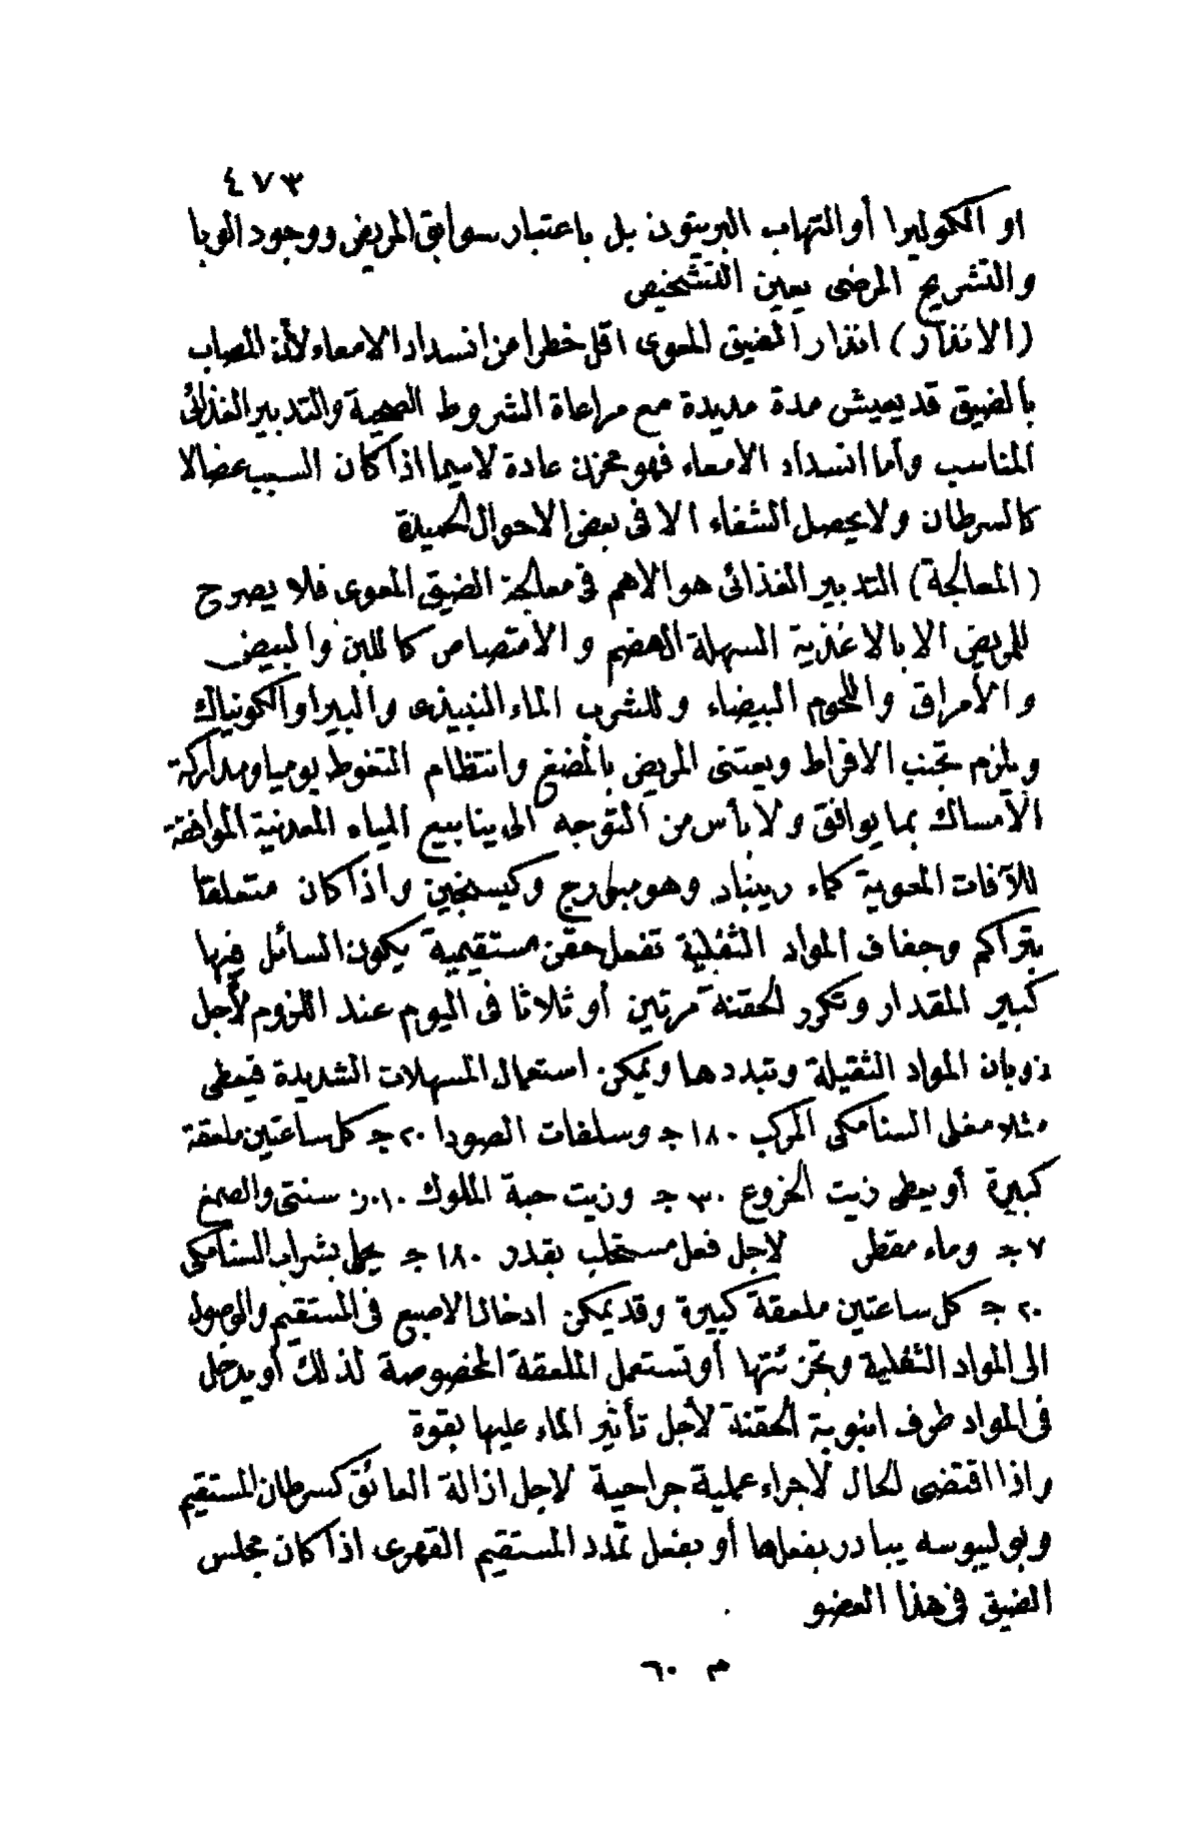 ٤٧٣
او الكوليرا أو التهاب البريتون بل باعتبار سوابق المريض ووجود الوبا
والتشريح المرضى يعين التشخيص
(الانذار) انذار الضيق المعوى اقل خطرا من انسداد الامعاء لأن المصاب
بالضيق قد يعيش مدة مديدة مع مراعاة الشروط الصحية والتدبير الغذائى
المناسب وأما انسداد الامعاء فهو محزن عادة لاسيما اذا كان السبب عضالا
كالسرطان ولا يحصل الشفاء الا فى بعض الاحوال الحميدة
(المعالجة) التدبير الغذائى هو الاهم فى معالجة الضيق المعوى فلا يصرح
للمريض الا بالاغذية السهلة الهضم والامتصاص كاللبن والبيض
والأمراق واللحوم البيضاء وللشرب الماء النبيذى والبيرا والكونياك
ويلزم تجنب الافراط ويعتنى المريض بالمضغ وانتظام التغوط يوميا ومداركة
الامساك بما يوافق ولا بأس من التوجه الى ينابيع المياه المعدنية الموافقة
للآفات المعوية كماء رينباد وهومبورج وكيسنجين واذا كان متعلقا
بتراكم وجفاف المواد الثفلية تفعل حقن مستقيمية يكون السائل فيها
كبير المقدار وتكرر الحقنة مرتين أو ثلاثا فى اليوم عند اللزوم لأجل
ذوبان المواد الثقيلة وتبددها ويمكن استعمال المسهلات الشديدة فيعطى
مثلا مغلى السنامكى المركب ١٨٠ جـ وسلفات الصودا ٢٠ جـ كل ساعتين ملعقة
كبيرة أو يعطى زيت الخروع ٣٠ جـ وزيت حبة الملوك ١٠ر٠ سنتى والصمغ
٧ جـ وماء مقطر لاجل فعل مستحلب بقدر ١٨٠ جـ يحلى بشراب السنامكى
٢٠ جـ كل ساعتين ملعقة كبيرة وقد يمكن ادخال الاصبع فى المستقيم والوصول
الى المواد الثفلية وتجزئتها أو تستعمل الملعقة المخصوصة لذلك أو يدخل
فى المواد طرف انبوبة الحقنة لأجل تأثير الماء عليها بقوة
واذا اقتضى الحال لاجراء عملية جراحية لاجل ازالة العائق كسرطان المستقيم
وبوليبوسه يبادر بفعلها أو بفعل تمدد المستقيم القهرى اذا كان مجلس
الضيق فى هذا العضو
م ٦٠